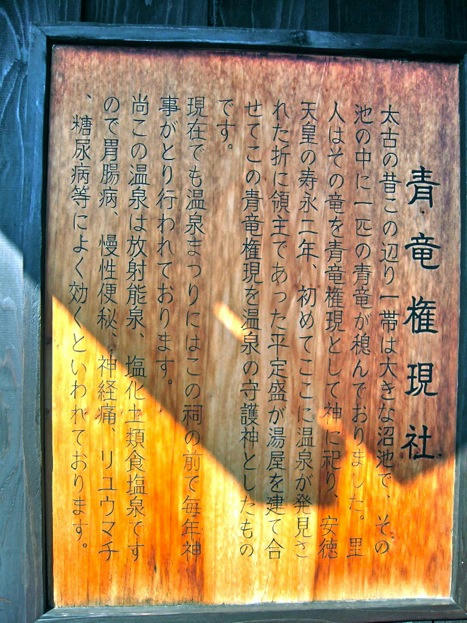 青竜権現社
太古の昔この辺り一帯は大きな沼池で、その
池の中に一匹の青竜が穏んでおりました。里
人はその竜を青竜権現として神に祀り、安徳
天皇の寿永二年、初めてここに温泉が発見さ
れた折に領主であった平定盛が湯屋を建て合
せてこの青竜権現を温泉の守護神としたもの
です。
現在でも温泉まつりにはこの祠の前で毎年神
事がとり行われております。
尚この温泉は放射能泉、塩化土類食塩泉です
ので胃腸病、慢性便秘、神経痛 リユウマチ
、糖尿病等によく効くといわれております。